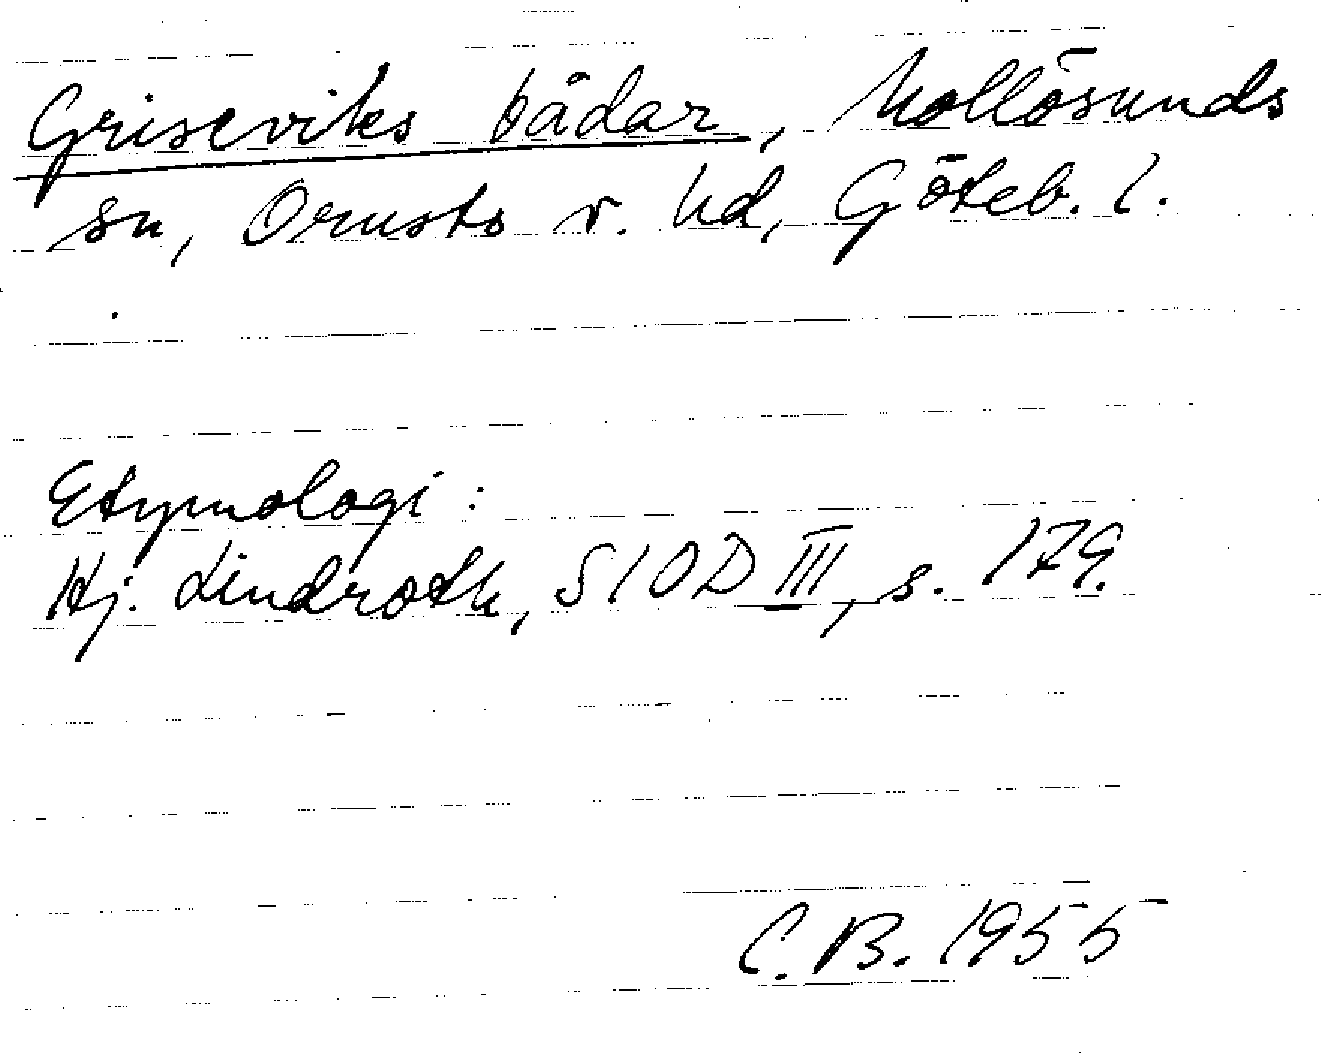 Griseviks bådar, Mollösunds
sn, Orusts v. hd, Göteb. l.
Etymologi:
Hj. Lindroth, SIOD III, s. 179.
C.B. 1955